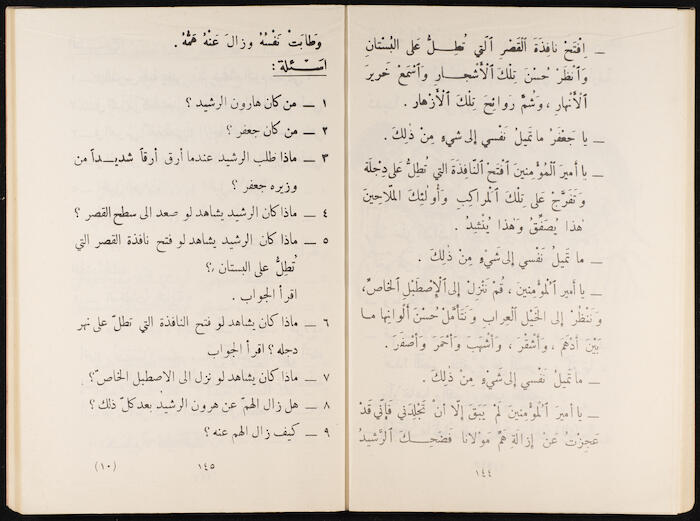 ـ اِفْتَحْ نافِذَةَ ٱلْقَصْرِ ٱلَّتي تُطِلُّ عَلى ٱلبُسْتانِ
وَٱنْظُرْ حُسْنَ تِلْكَ ٱلْأَشْجارِ وَٱسْمَعْ خَريرَ
ٱلْأَنْهارِ ، وَشُمَّ رَوائِحَ تِلْكَ ٱلْأَزْهارِ .
ـ يا جَعْفَرُ ما تَميلُ نَفْسي إلى شَيءٍ مِنْ ذٰلِكَ .
ـ يا أَميرَ ٱلْمُؤْمِنينَ ٱفْتَحْ ٱلنّافِذَةَ التي تُطِلُّ عَلى دِجْلَةَ
وَتَفَرَّجْ عَلى تِلْكَ ٱلْمَراكِبِ وَأُولٰئِكَ المَلّاحينَ
هٰذا يُصَفِّقُ وَهٰذا يُنْشِدُ .
ـ ما تَميلُ نَفْسي إلى شَيْءٍ مِنْ ذٰلِكَ .
ـ يا أَمير ٱلْمُؤْمِنينَ ، قُمْ نَنْزِلْ إلى ٱلْإصْطَبْلِ ٱلخاصِّ،
وَنَنْظُرْ إلى ٱلخَيْلِ ٱلعِرابِ وَنَتَأَمَّلْ حُسْنَ أَلْوانِها ما
بَيْنَ أَدْهَمَ ، وَأَشْقَرَ ، وَأَشْهَبَ وَأَحْمَرَ وَأَصْفَرَ .
ـ ما تَميلُ نَفْسي إلى شَيْءٍ مِنْ ذٰلِكَ.
ـ يا أَميرَ ٱلْمُؤْمِنينَ لَمْ يَبْقَ إلّا أنْ تَجْلِدَني فَإنّي قَدْ
عَجِزْتُ عَنْ إزالَةِ هَمِّ مَوْلانا فَضَحِكَ ٱلرَّشيدُ
١٤٤
وَطابَتْ نَفْسُهُ وزالَ عَنْهُ هَمُّهُ .
اسئلة :
١ ـ من كان هارون الرشيد ؟
٢ ـ من كان جعفر ؟
٣ ـ ماذا طلب الرشيد عندما أرق أرقاً شديداً من
وزيره جعفر ؟
٤ ـ ماذا كان الرشيد يشاهد لو صعد الى سطح القصر ؟
٥ ـ ماذا كان الرشيد يشاهد لو فتح نافذة القصر التي
تُطِلُّ على البستان ؟
اقرأ الجواب .
٦ ـ ماذا كان يشاهد لو فتح النافذة التي تطلّ على نهر
دجله ؟ اقرأ الجواب
٧ ـ ماذا كان يشاهد لو نزل الى الاصطبل الخاصّ؟
٨ ـ هل زال الهمّ عن هرون الرشيد بعد كلّ ذلك ؟
٩ ـ كيف زال الهم عنه ؟
١٤٥
(١٠)